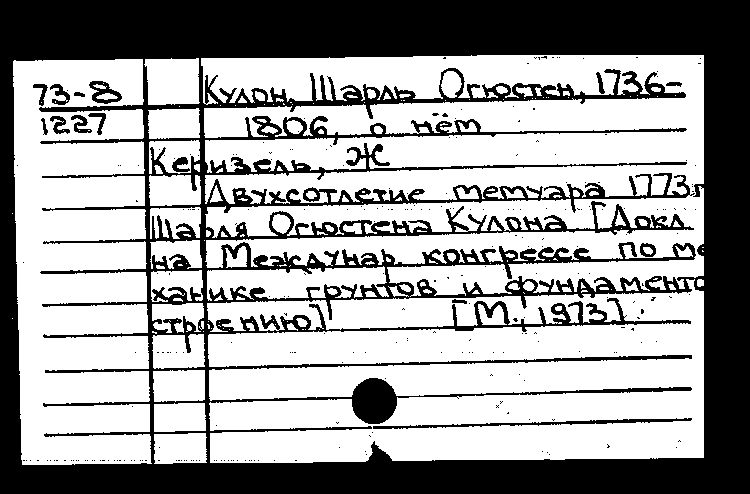 73-8 Кулон, Шарль Огюстен, 1736-
1227 1806, о нём.
Керизель, Ж
Двухсотлетие мемуара 1773г
Шарля Огюстена Кулона [Докл
на Междунар. конгрессе по ме
ханике грунтов и фундаменто
строению] [М., 1973].